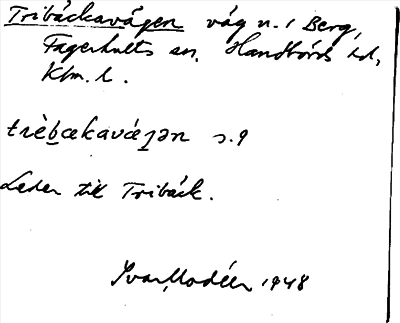 Tribäckavägen väg n. i Berg,
Fagerhults sn, Handbörds hd,
Klm. l.
trèb̲ækavǽɟən s. 9
Leder till Tribäck.
Ivar Modéer 1948